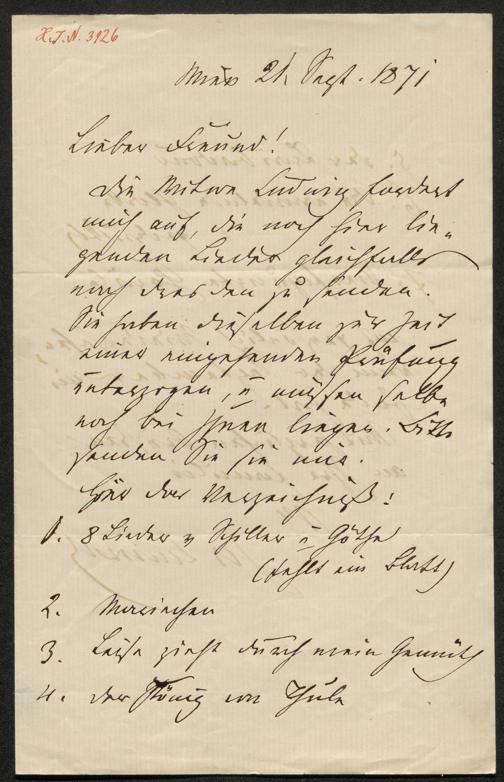 H.I.N. 3126
Wien 21. Sept. 1871
Lieber Freund!
Die Witwe Ludwig fordert
mich auf, die noch hier lie-
genden Lieder gleichfalls
nach Dresden zu senden.
Sie haben dieselben zur Zeit
einer eingehenden Prüfung
unterzogen, u müssen selbe
noch bei Ihnen liegen. Bitte
senden Sie sie mir.
Hier das Verzeichniß:
1. 8 Lieder v Schiller u Göthe
(fehlt ein Blatt)
2. 
3. Leise zieht durch mein Gemüth
4. Der König von Thule